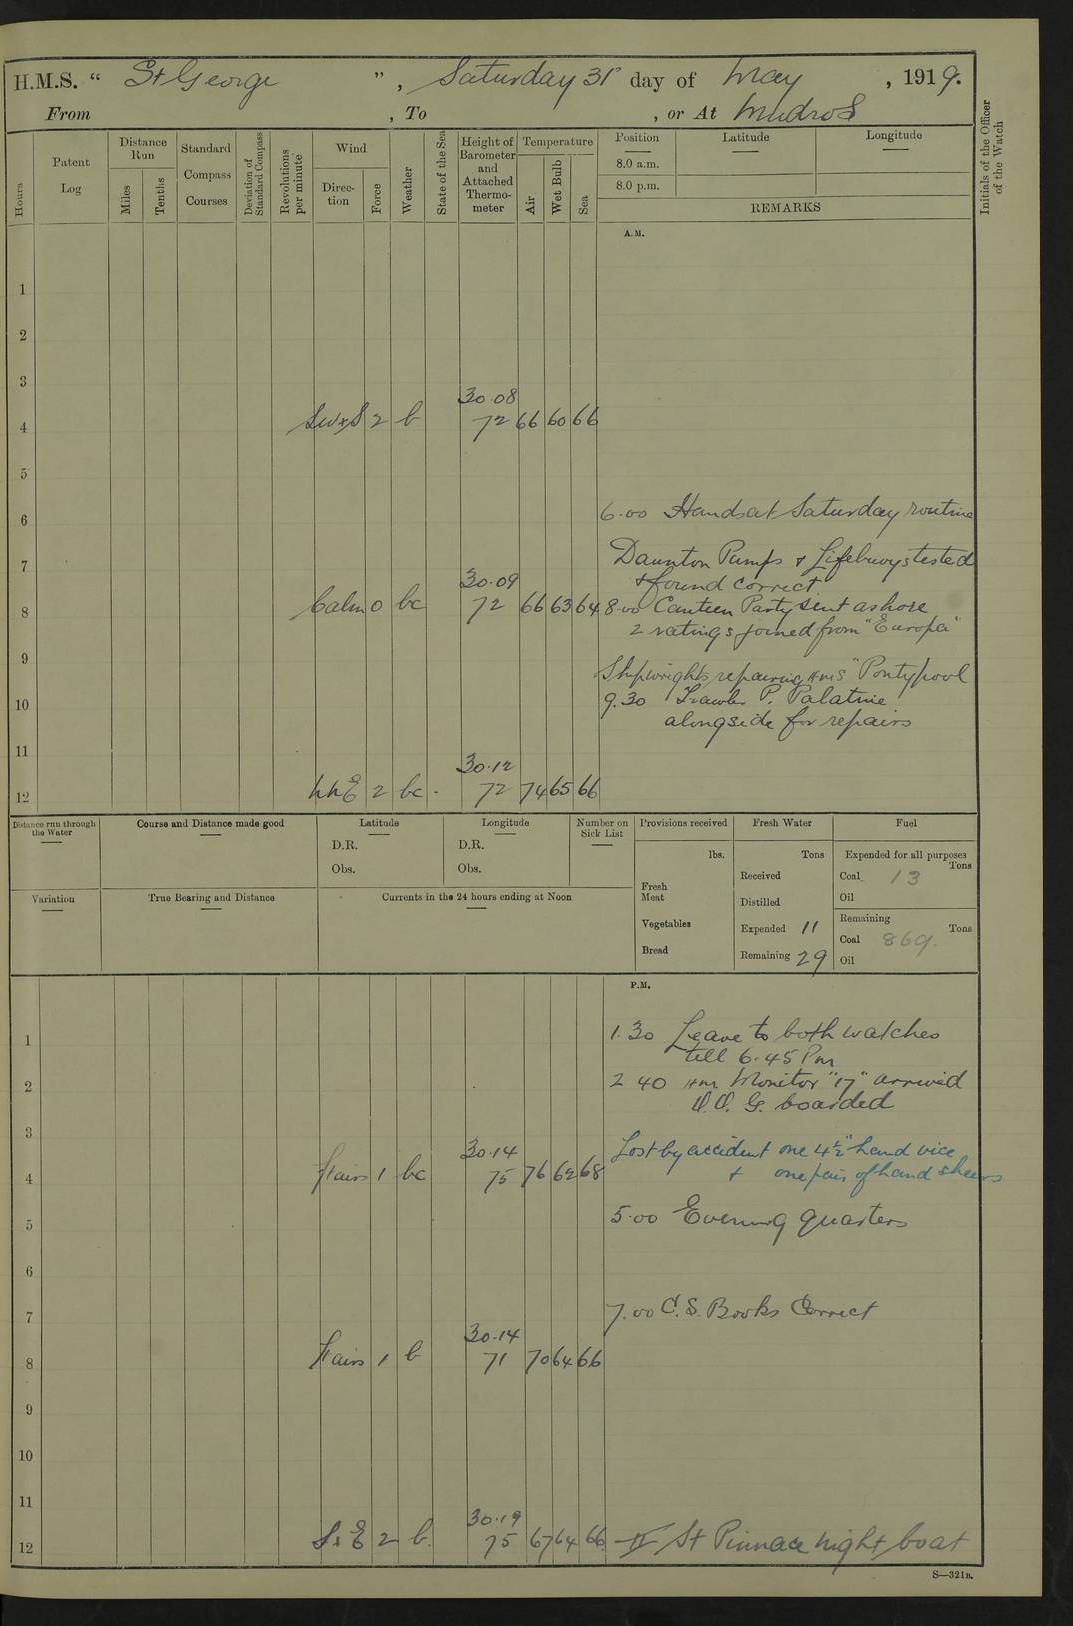 H.M.S. “ St George ”, Saturday 31st day of May, 1919.
From , To , or At Mudros
Hours
Patent Log
Distance Run
Miles
Tenths
Standard Compass Courses
Deviation of Standard Compass
Revolutions per minute
Wind
Direction
Force
Weather
State of the Sea
Height of Barometer and Attached Thermometer
Temperature
Air
Wet Bulb
Sea
Position
Latitude
Longitude
8.0 a.m.
8.0 p.m.
REMARKS
Initials of the Officer of the Watch
A.M.
1
2
3
30.08
4 SWxS 2 b 72 66 60 66
5
6 6.00 Hands at Saturday routine
7 Daunton Pumps & Lifebuoys tested
30.09 & found correct
8 Calm 0 bc 72 66 63 64 8.00 Canteen Party sent ashore
2 ratings joined from "Europa"
9
Shipwrights repairing HMS "Pontypool
10 9.30 Trawler P. Palatine
alongside for repairs
11
30.12
12 NNE 2 bc. 72 74 65 66
Distance run through the Water
Course and Distance made good
Latitude
D.R.
Obs.
Longitude
D.R.
Obs.
Number on Sick List
Provisions received
lbs.
Fresh Meat
Vegetables
Bread
Fresh Water
Tons
Received
Distilled
Expended 11
Remaining 29
Fuel
Expended for all purposes
Tons
Coal 13
Oil
Remaining
Tons
Coal 869.
Oil
Variation
True Bearing and Distance
Currents in the 24 hours ending at Noon
P.M.
1 1.30 Leave to both watches
till 6.45 Pm
2 2 40 HM Monitor "17" arrived
O.O.G. boarded
3
30.14 Lost by accident one 4½" hand vice
4 Airs 1 bc 75 76 62 68 + one pair of hand sheers
5 5.00 Evening quarters
6
7 7.00 C.S. Books Correct
30.14
8 Airs 1 b 71 70 64 66
9
10
11
30.19
12 SxE 2 b. 75 67 64 66 II St Pinnace night boat
S—321B.